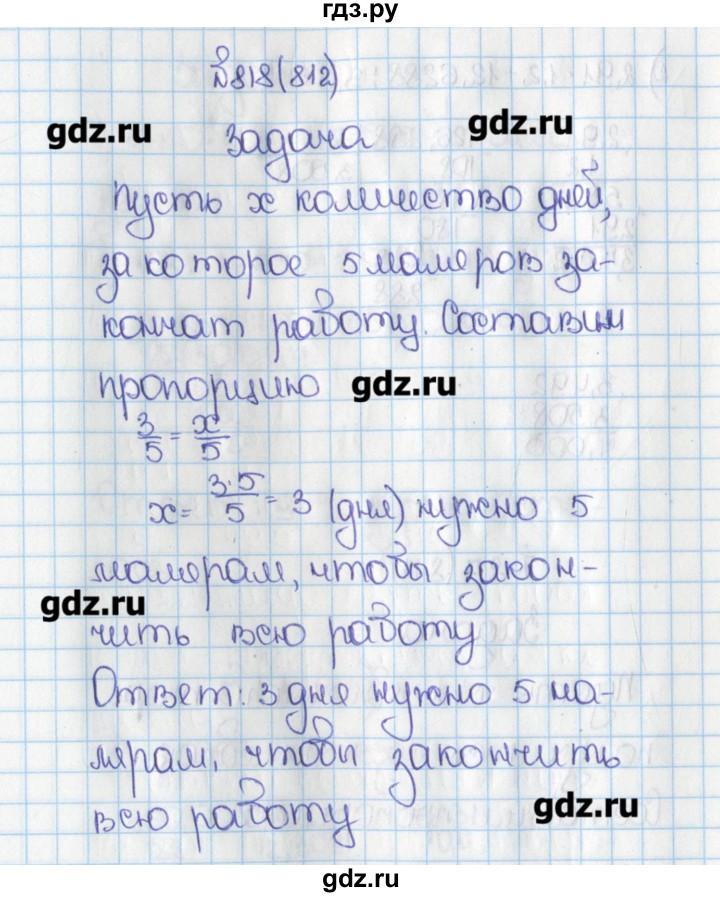 гдз.ру
№818(812)
gdz.ru
задача
gdz.ru
Пусть x количество дней,
за которое 5 маляров за-
кончат работу. Составим
пропорцию
gdz.ru
3/5 = x/5
x = 3·5/5 = 3 (дня) нужно 5
малярам, чтобы закон-
gdz.ru
чить всю работу
Ответ: 3 дня нужно 5 ма-
лярам, чтобы закончить
всю работу
gdz.ru
gdz.ru